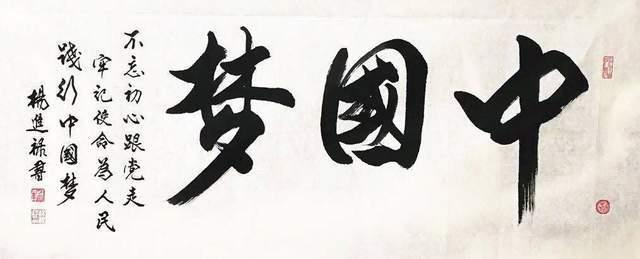 中國梦
不忘初心跟党走
牢记使命為人民
践行中國梦
楊進禄書